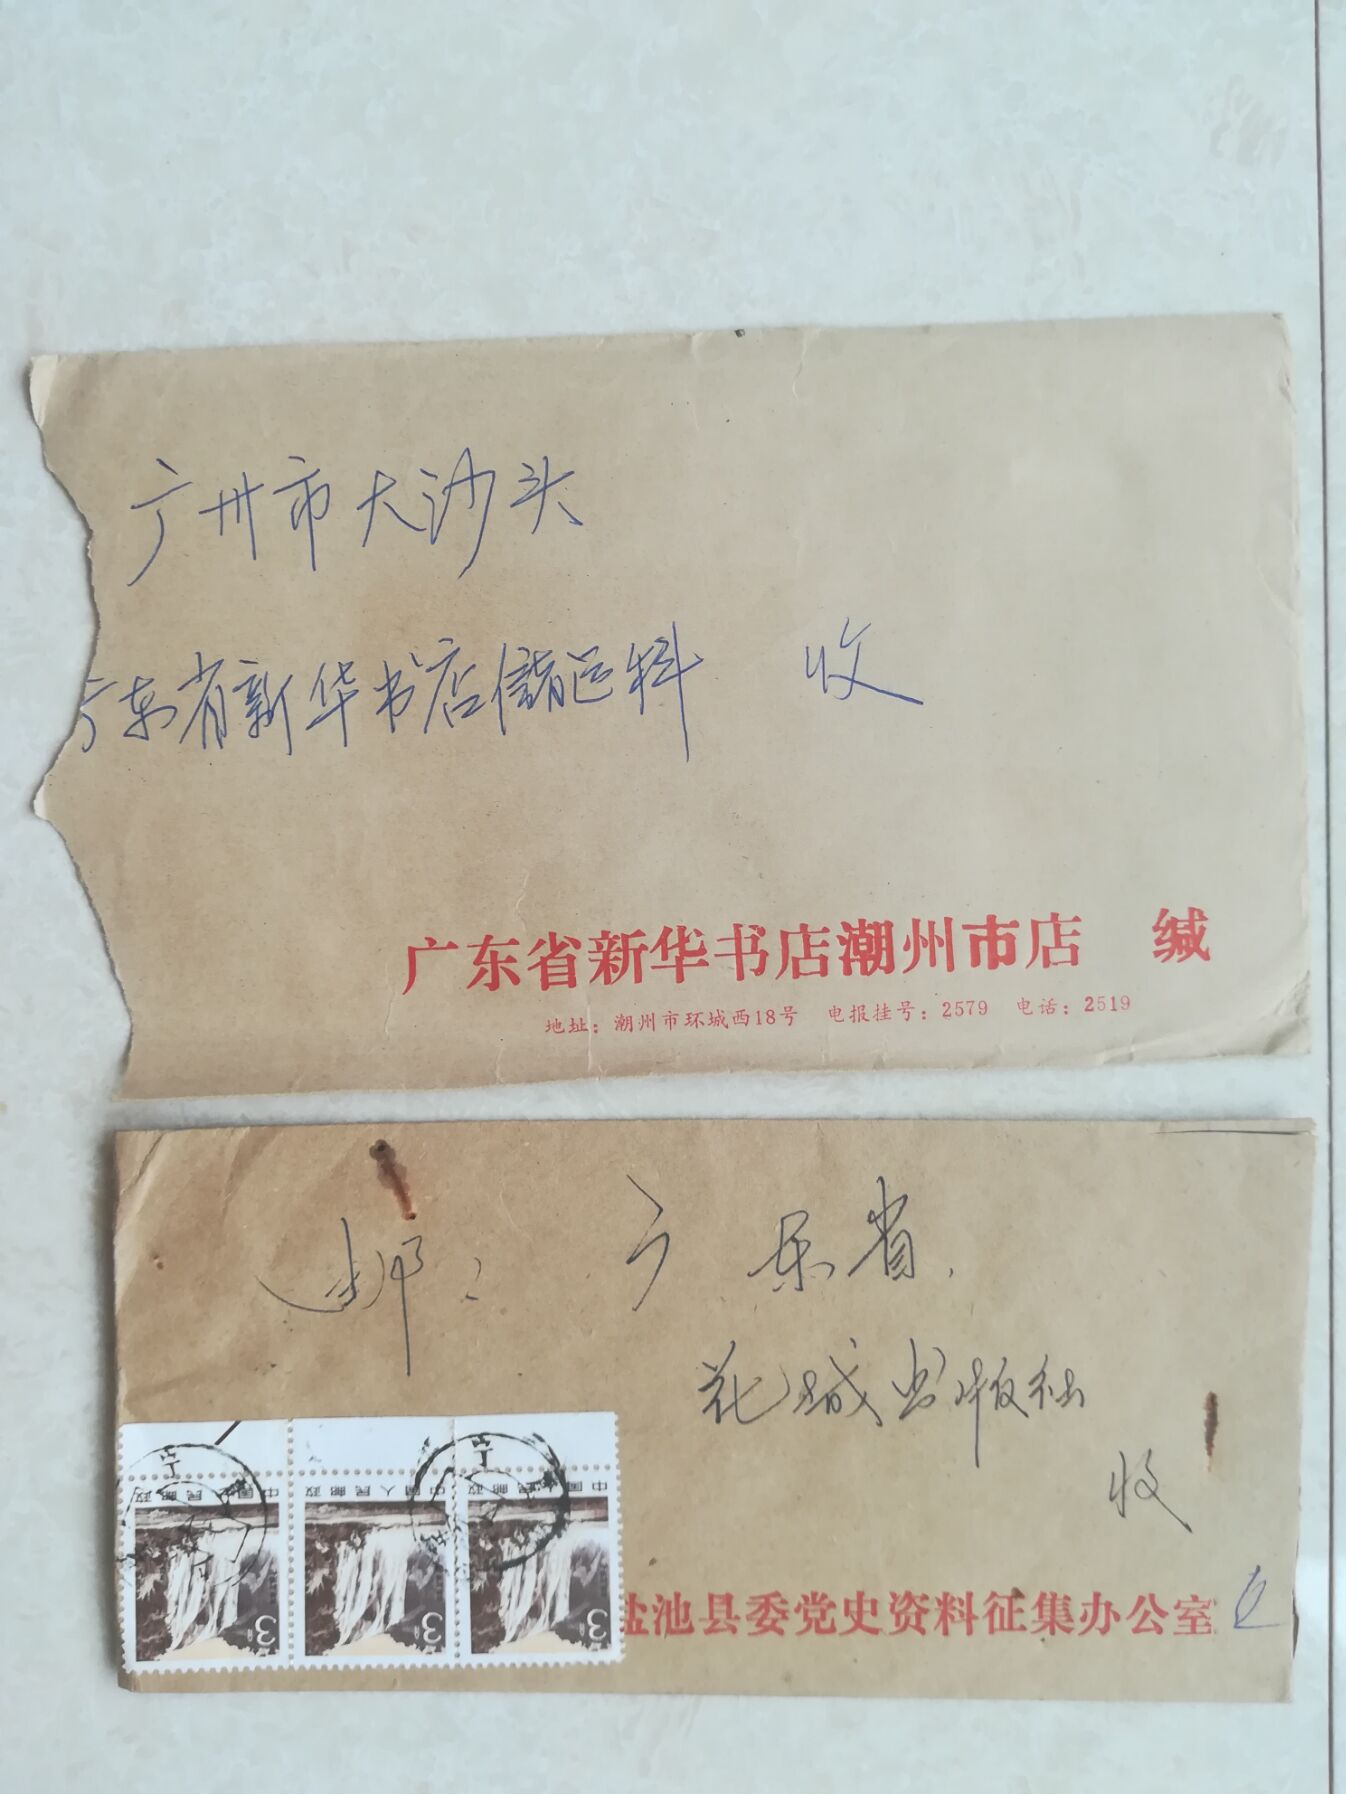 广州市大沙头
广东省新华书店储运科 收
广东省新华书店潮州市店 缄
地址：潮州市环城西18号 电报挂号：2579 电话：2519
邮： 广东省，
花城出版社
收
中国人民邮政
中国人民邮政
中国人民邮政
3分
3分
3分
盐池县委党史资料征集办公室